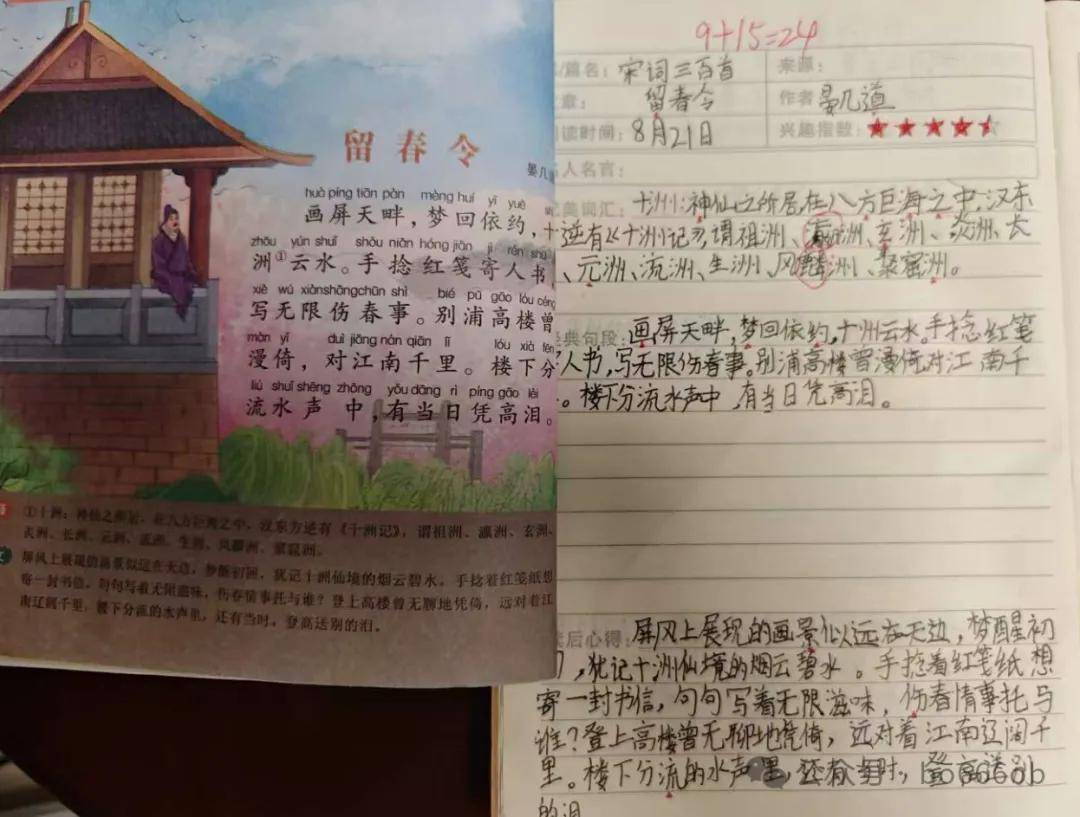 留春令
晏几
huà píng tiān pàn mèng huí yī yuē
画屏天畔，梦回依约，十
zhōu yún shuǐ shǒu niān hóng jiān jì rén shū
洲①云水。手捻红笺寄人书，
xiě wú xiàn shāng chūn shì bié pǔ gāo lóu céng
写无限伤春事。别浦高楼曾
màn yǐ duì jiāng nán qiān lǐ lóu xià fēn
漫倚，对江南千里。楼下分
liú shuǐ shēng zhōng yǒu dāng rì píng gāo lèi
流水声中，有当日凭高泪。
①十洲：神仙之所居，在八方巨海之中，汉东方逆有《十洲记》，谓祖洲、瀛洲、玄洲、
炎洲、长洲、元洲、流洲、生洲、凤麟洲、聚窟洲。
屏风上展现的画景似远在天边，梦醒初回，犹记十洲仙境的烟云碧水。手捻着红笺纸想
寄一封书信，句句写着无限滋味，伤春情事托与谁？登上高楼曾无聊地凭倚，远对着江
南辽阔千里。楼下分流的水声里，还有当时，登高送别的泪。
9+15=24
篇名：宋词三百首 来源：
章：留春令 作者 晏几道
读时间：8月21日 兴趣指数：★★★★
人名言：
典词汇：十洲：神仙之所居，在八方巨海之中，汉东
逆有《十洲记》，谓祖洲、瀛洲、玄洲、炎洲、长
、元洲、流洲、生洲、风麟洲、聚窟洲。
典句段：画屏天畔，梦回依约，十洲云水。手捻红笺
人书，写无限伤春事。别浦高楼曾漫倚，对江南千
。楼下分流水声中，有当日凭高泪。
读后心得：屏风上展现的画景似远在天边，梦醒初
，犹记十洲仙境的烟云碧水。手捻着红笺纸想
寄一封书信，句句写着无限滋味，伤春情事托与
谁？登上高楼曾无聊地凭倚，远对着江南辽阔千
里。楼下分流的水声里，还有当时，登高送别
的泪